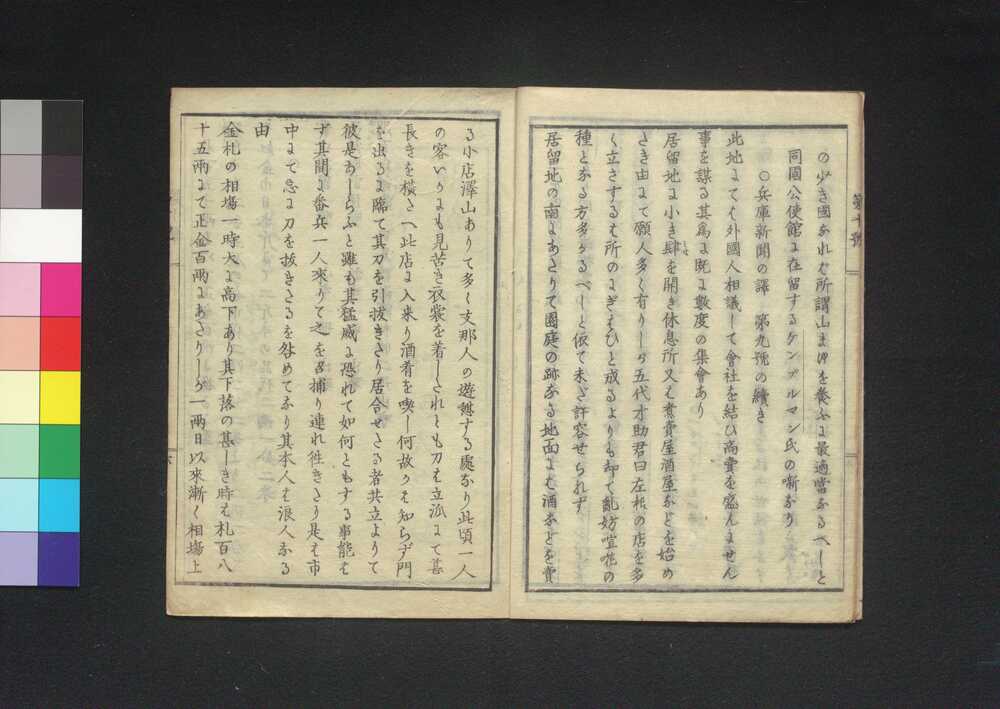 の少き國なれば所謂山まゆを養ふに最適當なるべしと
同國公使館に在留するケンプルマン氏の噺なり
○兵庫新聞の譯 第九號の續き
此地にては外國人相議して會社を結ひ商賣を盛んにせん
事を謀る其為に既に數度の集會あり
居留地に小き肆を開き休息所又は煮賣屋酒屋などを始め
さき由にて願人多く有りしが五代才助君曰左様の店を多
く立さするは所のにぎはひと成るよりも却て亂妨喧嘩の
種となる方多かるべしと依て未だ許容せられず
居留地の南にあたりて園庭の跡なる地面には酒などを賣
る小店澤山ありて多く支那人の遊戲する處なり此頃一人
の客いかにも見苦き衣裳を着したれとも刀は立派にて甚
長きを横たへ此店に入来り酒肴を喫し何故かは知らず門
を出るに臨て其刀を引拔きたり居合せたる者共立よりて
彼是あしらふと雖も其猛威に恐れて如何ともする事能は
ず其間に番兵一人來りて之を召捕り連れ徃きたり是は市
中にて忍に刀を拔きたるを咎めてなり其本人は浪人なる
由
金札の相場一時大に高下あり其下落の甚しき時は札百八
十五兩にて正金百兩にあたりしが一兩日以來漸く相場上
第十號